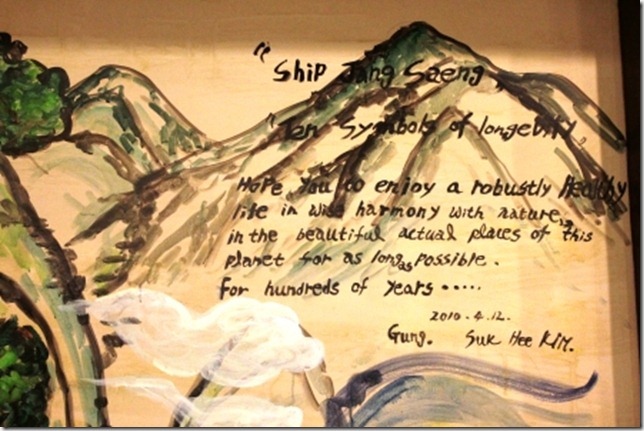 "Ship Jang Saeng"
"Ten Symbols of longevity"
Hope you to enjoy a robustly Healthy
life in wise harmony with nature,
in the beautiful actual places of this
planet for as long as possible.
For hundreds of years .....
2010.4.12.
Gung. Suk Hee Kim.